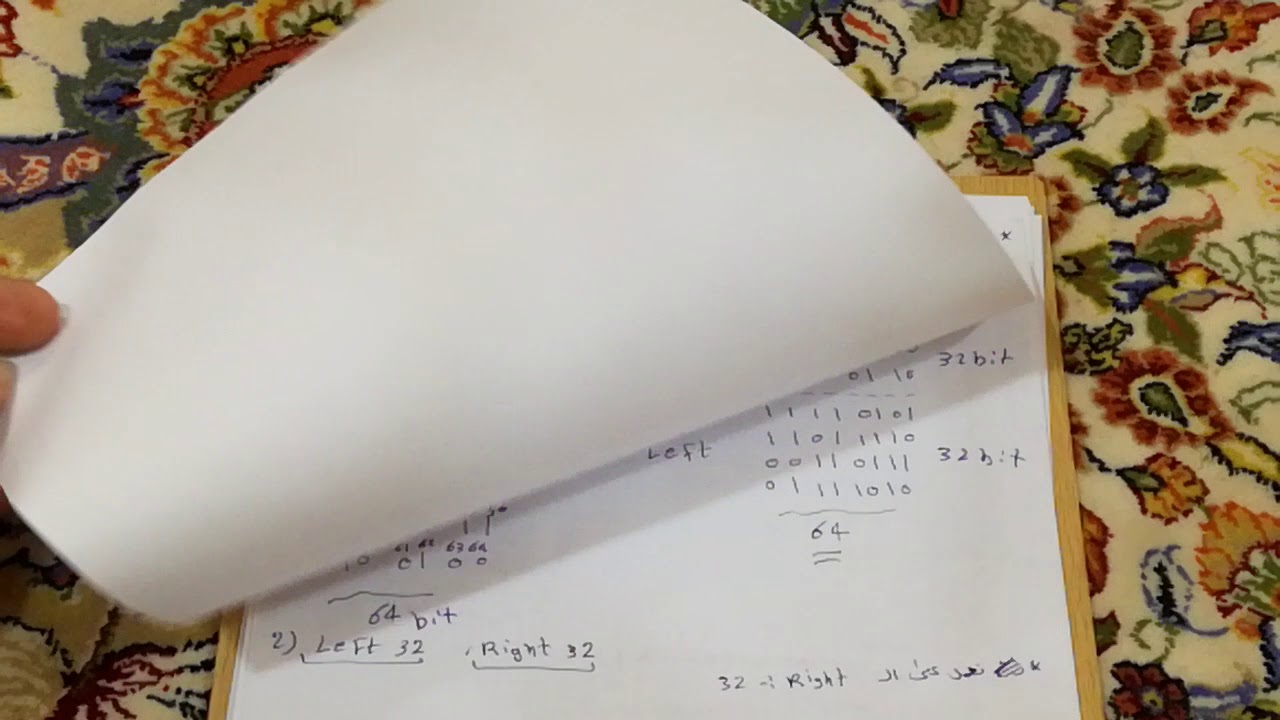 *
32 bit
01 10
1 1 1 1 0 1 0 1
Left 1 1 0 1 1 1 1 0 32 bit
0 0 1 1 0 1 1 1
0 1 1 1 1 0 1 0
64
61 62 63 64
1 0 0 1 0 0
64 bit
2) Left 32 , Right 32
* الـ Right :- 32